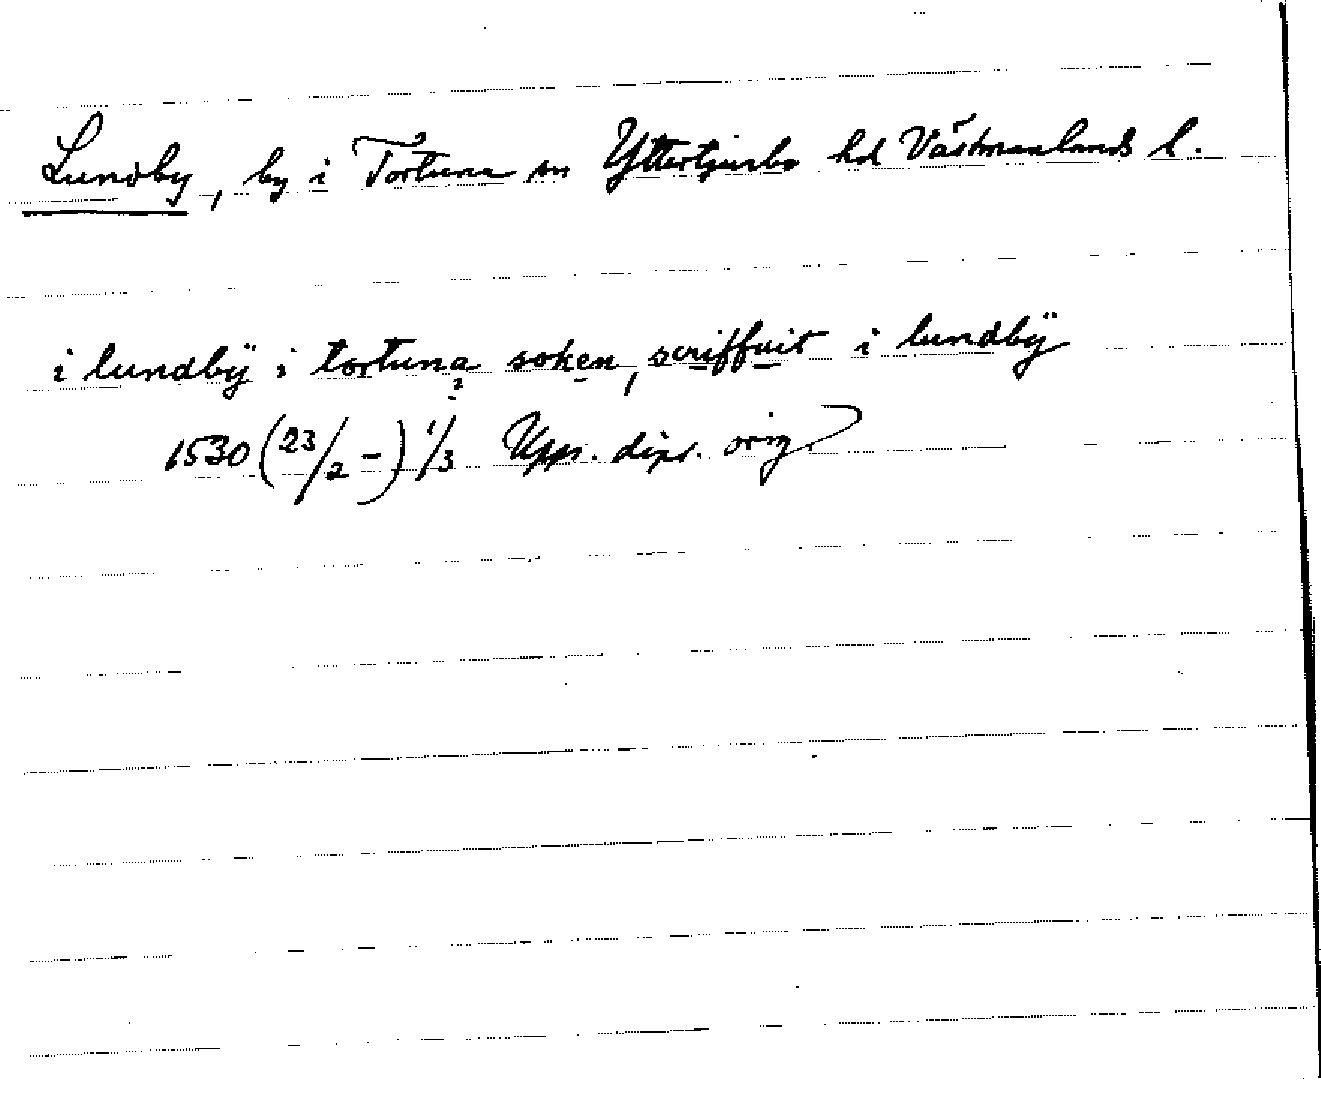 Lundby, by i Tortuna sn Yttertjurbo hd Västmanlands l.
i lundbÿ i tortuna soken, scriffuit i lundbÿ
1530 (23/2 -) 1/3 Upps. dipl. orig.